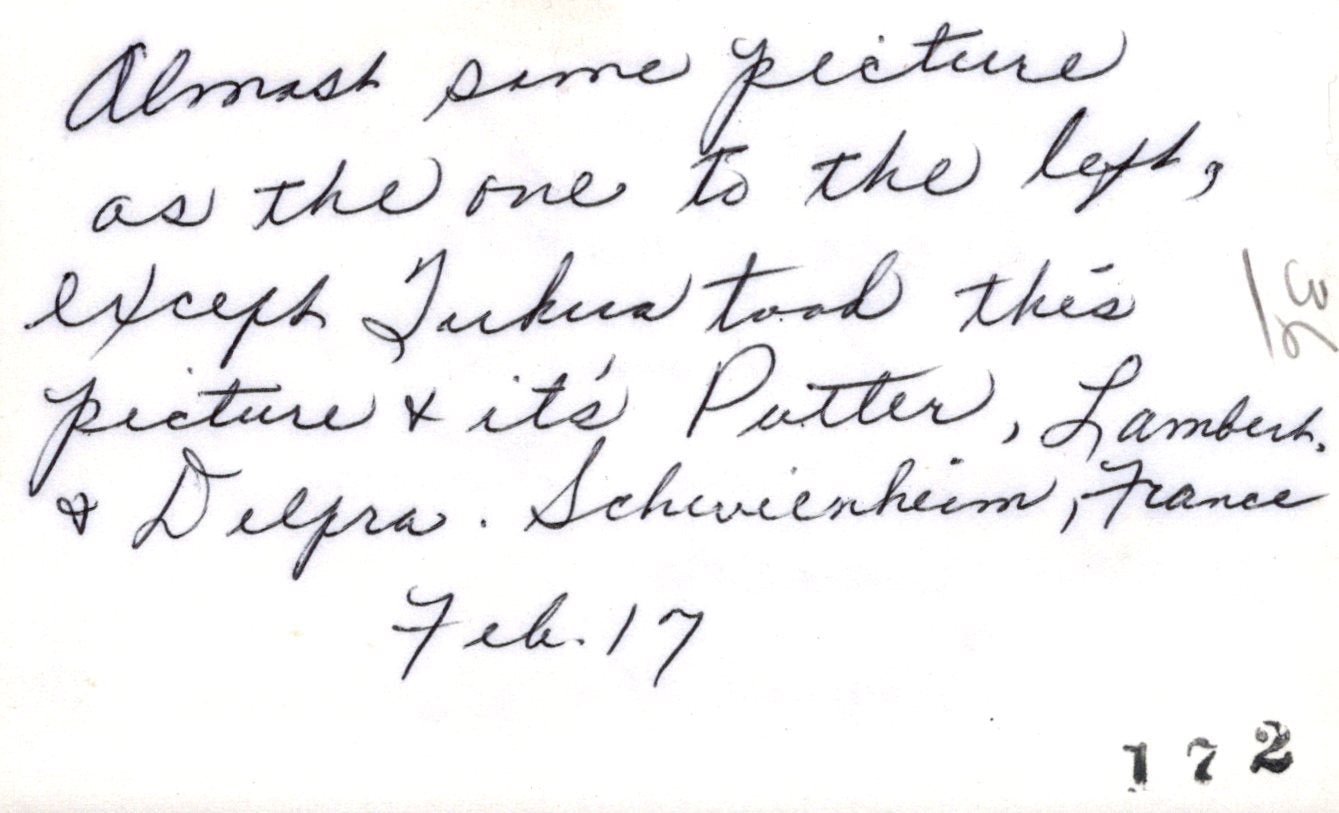 Almost same picture
as the one to the left,
except Turkua took this
picture & it's Putter, Lambert,
& Delpra. Schwienheim, France
Feb. 17
172